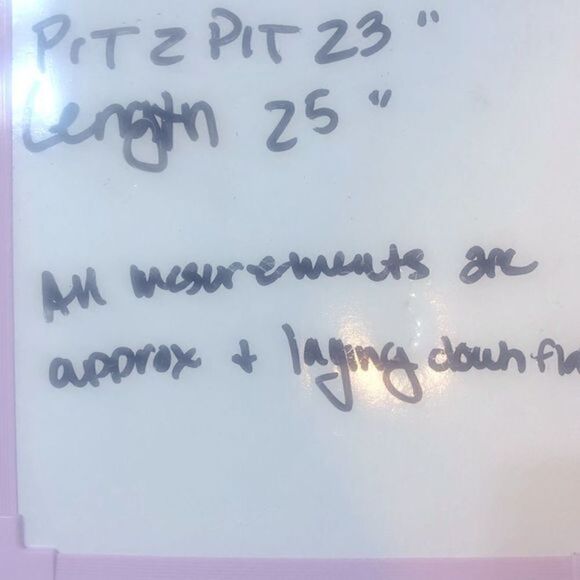 PIT 2 PIT 23"
Length 25"
All mesurements are
approx + laying down fla